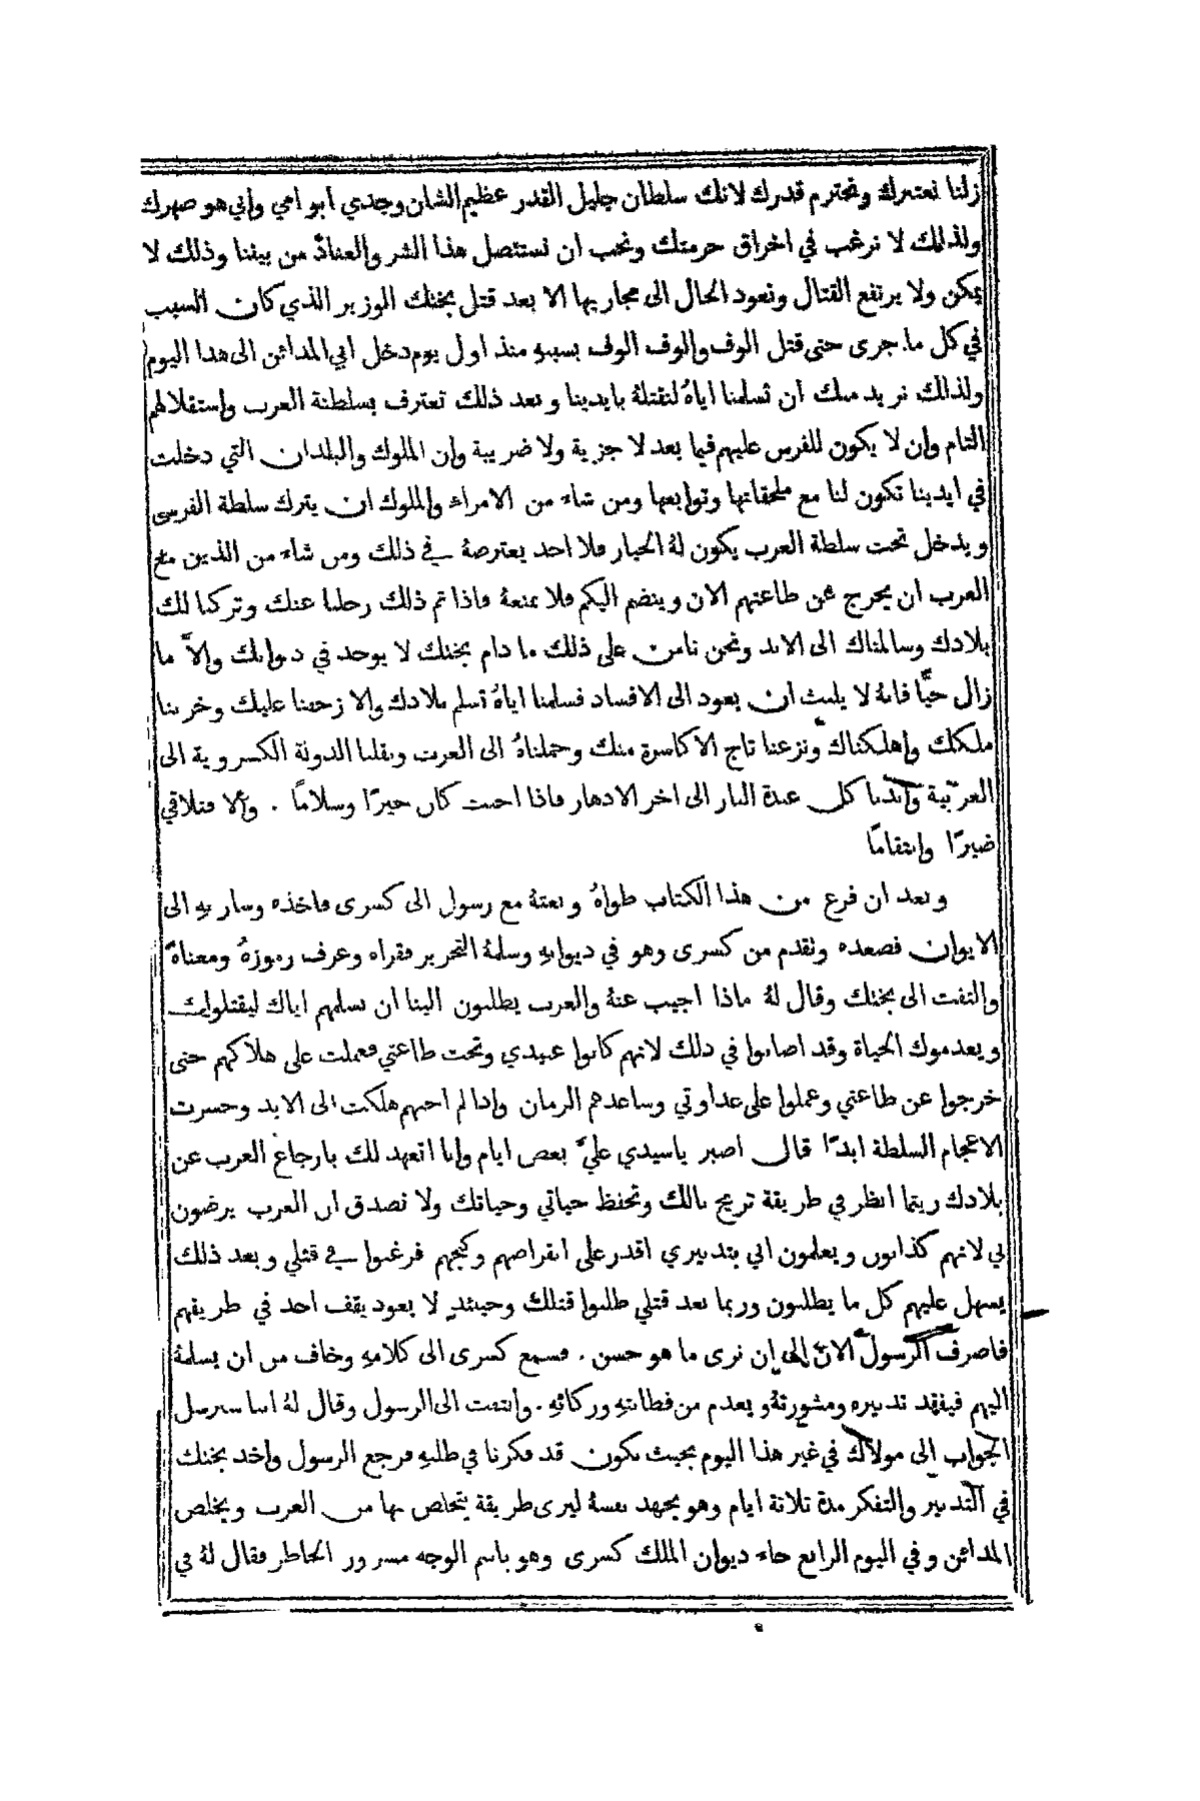 زلنا نعتبرك ونحترم قدرك لانك سلطان جليل القدر عظيم الشان وجدي ابو امي وابي هو صهرك
ولذلك لا نرغب في اخراق حرمتك ونحب ان نستئصل هذا الشر والعناد من بيننا وذلك لا
يمكن ولا يرتفع القتال وتعود الحال الى مجاريها الا بعد قتل بختك الوزير الذي كان السبب
في كل ما جرى حتى قتل الوف والوف الوف بسببهِ منذ اول يوم دخل ابي المدائن الى هذا اليوم
ولذلك نريد منك ان تسلمنا اياهُ لنقتلهُ بايدينا وبعد ذلك تعترف بسلطنة العرب واستقلالهم
التام وان لا يكون للفرس عليهم فيما بعد لا جزية ولا ضريبة وان الملوك والبلدان التي دخلت
في ايدينا تكون لنا مع ملحقاتها وتوابعها ومن شاء من الامراء والملوك ان يترك سلطة الفرس
ويدخل تحت سلطة العرب يكون لهُ الخيار فلا احد يعترضهُ في ذلك ومن شاء من الذين مع
العرب ان يخرج عن طاعتهم الان وينضم اليكم فلا نمنعهُ فاذا تم ذلك رحلنا عنك وتركنا لك
بلادك وسالمناك الى الابد ونحن نامن على ذلك ما دام بختك لا يوجد في ديوانك والاَّ ما
زال حيًّا فانهُ لا يلبث ان يعود الى الافساد فسلمنا اياهُ تسلم بلادك والا زحفنا عليك وخربنا
ملكك واهلكناك ونزعنا تاج الاكاسرة منك وحملناهُ الى العرب ونقلنا الدولة الكسروية الى
العربية وابدنا كل عبدة النار الى اخر الادهار فاذا اجبت كان خيرًا وسلامًا . والا فتلاقي
ضيرًا وانتقامًا
وبعد ان فرغ من هذا الكتاب طواهُ وبعثهُ مع رسول الى كسرى فاخذه وسار بهِ الى
الايوان فصعده وتقدم من كسرى وهو في ديوانهِ وسلمهُ التحرير فقراه وعرف رموزهُ ومعناهُ
والتفت الى بختك وقال لهُ ماذا اجيب عنهُ والعرب يطلبون الينا ان نسلمهم اياك ليقتلوك
ويعدموك الحياة وقد اصابوا في ذلك لانهم كانوا عبيدي وتحت طاعتي فعملت على هلاكهم حتى
خرجوا عن طاعتي وعملوا على عداوتي وساعدهم الزمان واذا لم اجبهم هلكت الى الابد وخسرت
الاعجام السلطة ابدًا قال اصبر ياسيدي عليَّ بعض ايام وانا اتعهد لك بارجاع العرب عن
بلادك ريثما انظر في طريقة تريح بالك وتحفظ حياتي وحياتك ولا تصدق ان العرب يرضون
بي لانهم كذابون ويعلمون اني بتدبيري اقدر على انقراضهم وكبحهم فرغبوا في قتلي وبعد ذلك
يسهل عليهم كل ما يطلبون وربما بعد قتلي طلبوا قتلك وحينئذٍ لا يعود يقف احد في طريقهم
فاصرف الرسول الان الى ان نرى ما هو حسن . فسمع كسرى الى كلامهِ وخاف من ان يسلمهُ
اليهم فيفقد تدبيره ومشورتهُ ويعدم من فطانتهِ وركائهِ . والتفت الى الرسول وقال لهُ اننا سنرسل
الجواب الى مولاك في غير هذا اليوم بحيث نكون قد فكرنا في طلبهِ فرجع الرسول واخذ بختك
في التدبير والتفكر مدة ثلاثة ايام وهو يجهد نفسهُ ليرى طريقة يتخلص بها من العرب ويخلص
المدائن وفي اليوم الرابع جاء ديوان الملك كسرى وهو باسم الوجه مسرور الخاطر فقال لهُ في